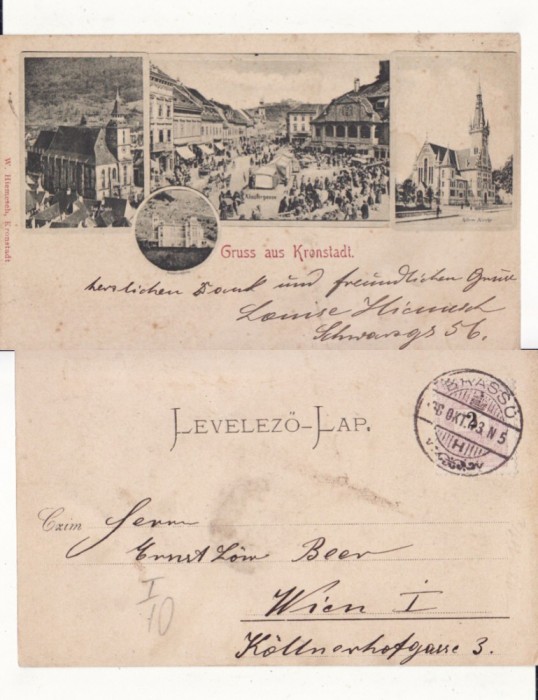 W. Hiemesch, Kronstadt.
Gruss aus Kronstadt.
herzlichen Dank und freundlichen Gruss
Louise Hiemesch
Schwarzg. 56.
LEVELEZŐ-LAP.
BRASSÓ
OKT. 3. N 5
H
2
Czim
Herrn
Ernst Löw Beer
Wien I
Köllnerhofgasse 3.
I
10